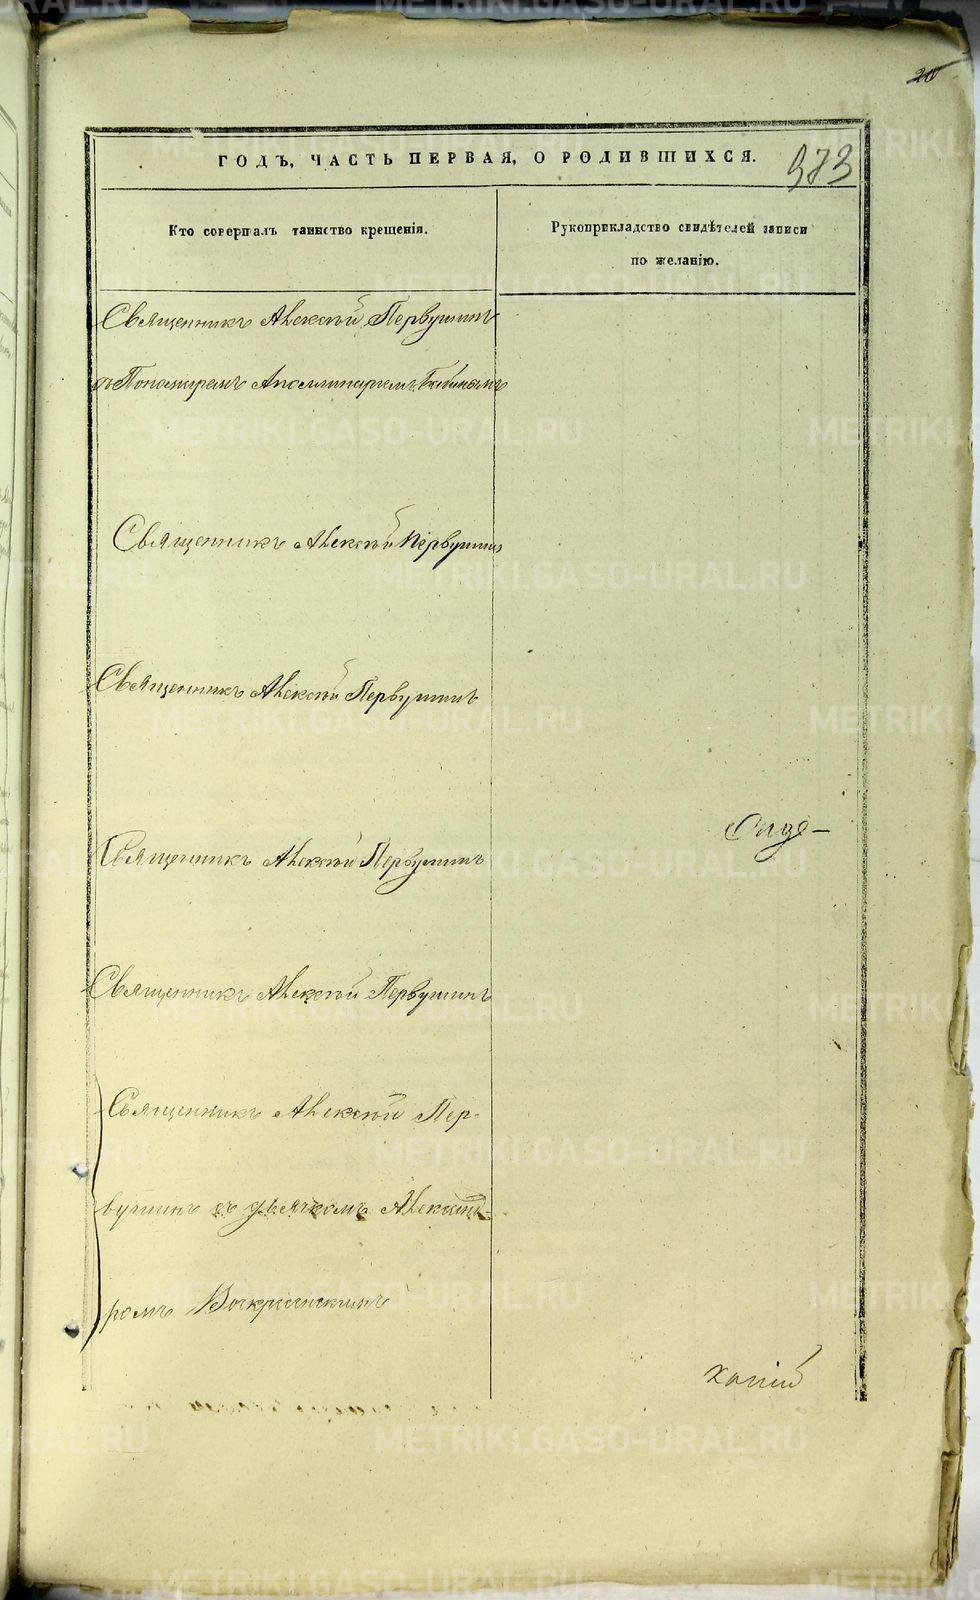 20
ГОДЪ, ЧАСТЬ ПЕРВАЯ, О РОДИВШИХСЯ.
973
Кто совершалъ таинство крещенія.
Рукоприкладство свидѣтелей записи
по желанію.
Священникъ Алексѣй Первушинъ
съ Пономаремъ Аполлинаріемъ
Священникъ Алексѣй Первушинъ
Священникъ Алексѣй Первушинъ
Священникъ Алексѣй Первушинъ
Священникъ Алексѣй Первушинъ
Священникъ Алексѣй Пер-
вушинъ съ дьячкомъ Александ-
ромъ Воскресенскимъ
METRIKI.GASO-URAL.RU